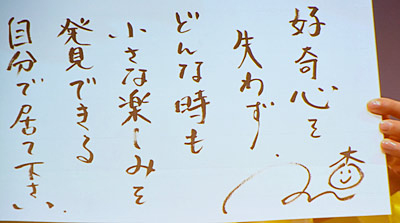 好奇心を
失わず
どんな時も
小さな楽しみを
発見できる
自分で居て下さい。
杏